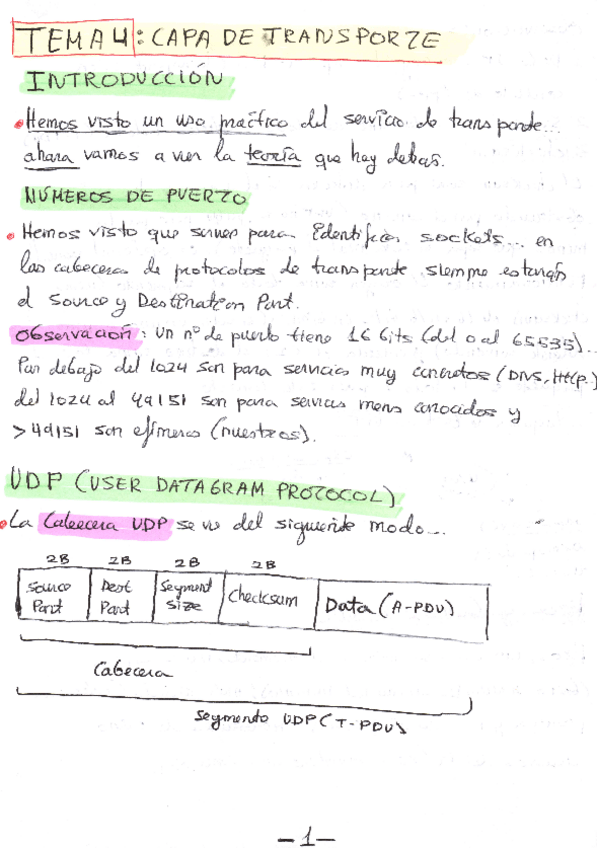 TEMA 4: CAPA DE TRANSPORTE
INTRODUCCIÓN
Hemos visto un uso práctico del servicio de transporte...
ahora vamos a ver la teoría que hay detrás.
NÚMEROS DE PUERTO
Hemos visto que sirven para identificar sockets... en
las cabeceras de protocolos de transporte siempre estarán
el Source y Destination Port.
Observación: Un nº de puerto tiene 16 bits (del 0 al 65535)...
Por debajo del 1024 son para servicios muy concretos (DNS, Http.)
del 1024 al 49151 son para servicios menos conocidos y
>49151 son efímeros (nuestros).
UDP (USER DATAGRAM PROTOCOL)
La Cabecera UDP se ve del siguiente modo...
2B 2B 2B 2B
Source Port
Dest Port
Segment size
Checksum
Data (A-PDU)
Cabecera
Segmento UDP (T-PDU)
-1-